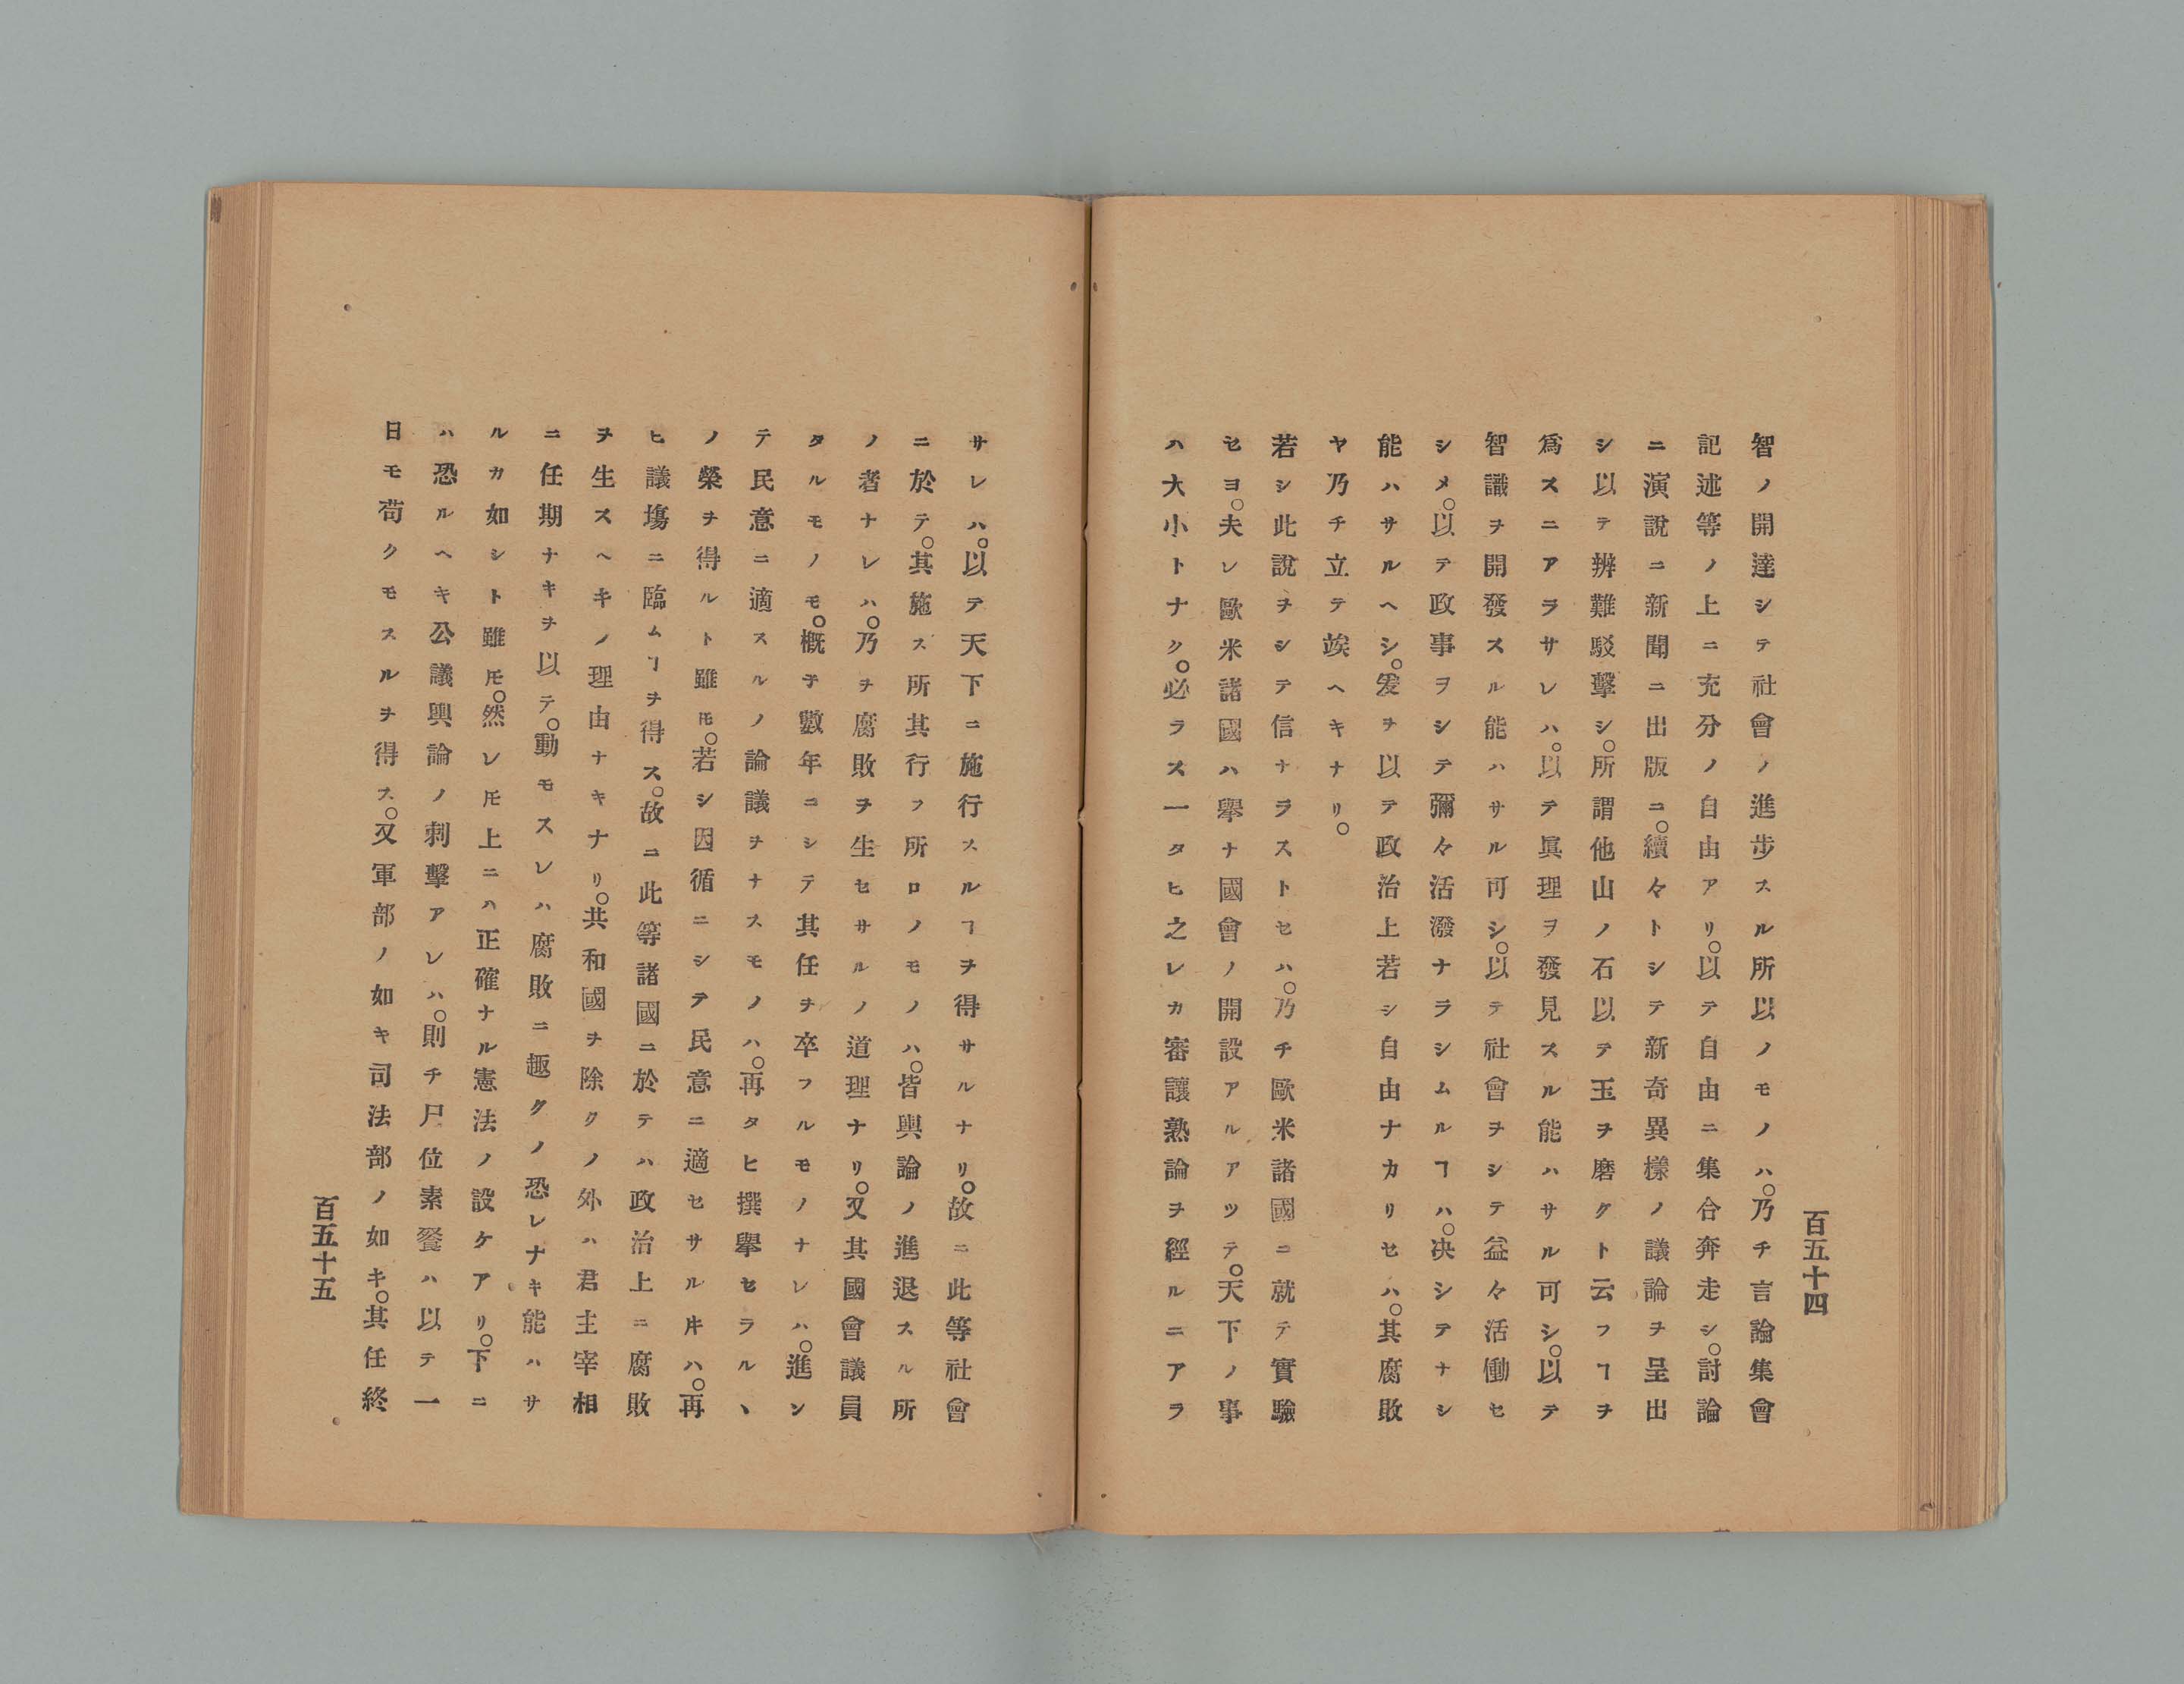 百五十四
智ノ開達シテ社會ノ進步スル所以ノモノハ。乃チ言論集會
記述等ノ上ニ充分ノ自由アリ。以テ自由ニ集合奔走シ。討論
ニ演說ニ新聞ニ出版ニ。續々トシテ新奇異樣ノ議論ヲ呈出
シ以テ辨難駁擊シ。所謂他山ノ石以テ玉ヲ磨クト云フヿヲ
爲スニアラサレハ。以テ眞理ヲ發見スル能ハサル可シ。以テ
智識ヲ開發スル能ハサル可シ。以テ社會ヲシテ益々活働セ
シメ。以テ政事ヲシテ彌々活潑ナラシムルヿハ。决シテナシ
能ハサルヘシ。爰ヲ以テ政治上若シ自由ナカリセハ。其腐敗
ヤ乃チ立テ竢ヘキナリ。
若シ此說ヲシテ信ナラストセハ。乃チ歐米諸國ニ就テ實驗
セヨ。夫レ歐米諸國ハ擧ナ國會ノ開設アルアツテ。天下ノ事
ハ大小トナク。必ラス一タヒ之レカ審議熟論ヲ經ルニアラ
サレハ。以テ天下ニ施行スルヿヲ得サルナリ。故ニ此等社會
ニ於テ。其施ス所其行フ所ロノモノハ。皆輿論ノ進退スル所
ノ者ナレハ。乃ヲ腐敗ヲ生セサルノ道理ナリ。又其國會議員
タルモノモ。槪子數年ニシテ其任ヲ卒フルモノナレハ。進ン
テ民意ニ適スルノ論議ヲナスモノハ。再タヒ撰擧セラルヽ
ノ榮ヲ得ルト雖𪜈。若シ因循ニシテ民意ニ適セサル𪜀ハ。再
ヒ議塲ニ臨ムヿヲ得ス。故ニ此等諸國ニ於テハ政治上ニ腐敗
ヲ生スヘキノ理由ナキナリ。共和國ヲ除クノ外ハ君主宰相
ニ任期ナキヲ以テ。動モスレハ腐敗ニ趣クノ恐レナキ能ハサ
ルカ如シト雖𪜈。然レ𪜈上ニハ正確ナル憲法ノ設ケアリ。下ニ
ハ恐ルヘキ公議輿論ノ刺擊アレハ。則チ尸位素餐ハ以テ一
日モ苟クモスルヲ得ス。又軍部ノ如キ司法部ノ如キ。其任終
百五十五